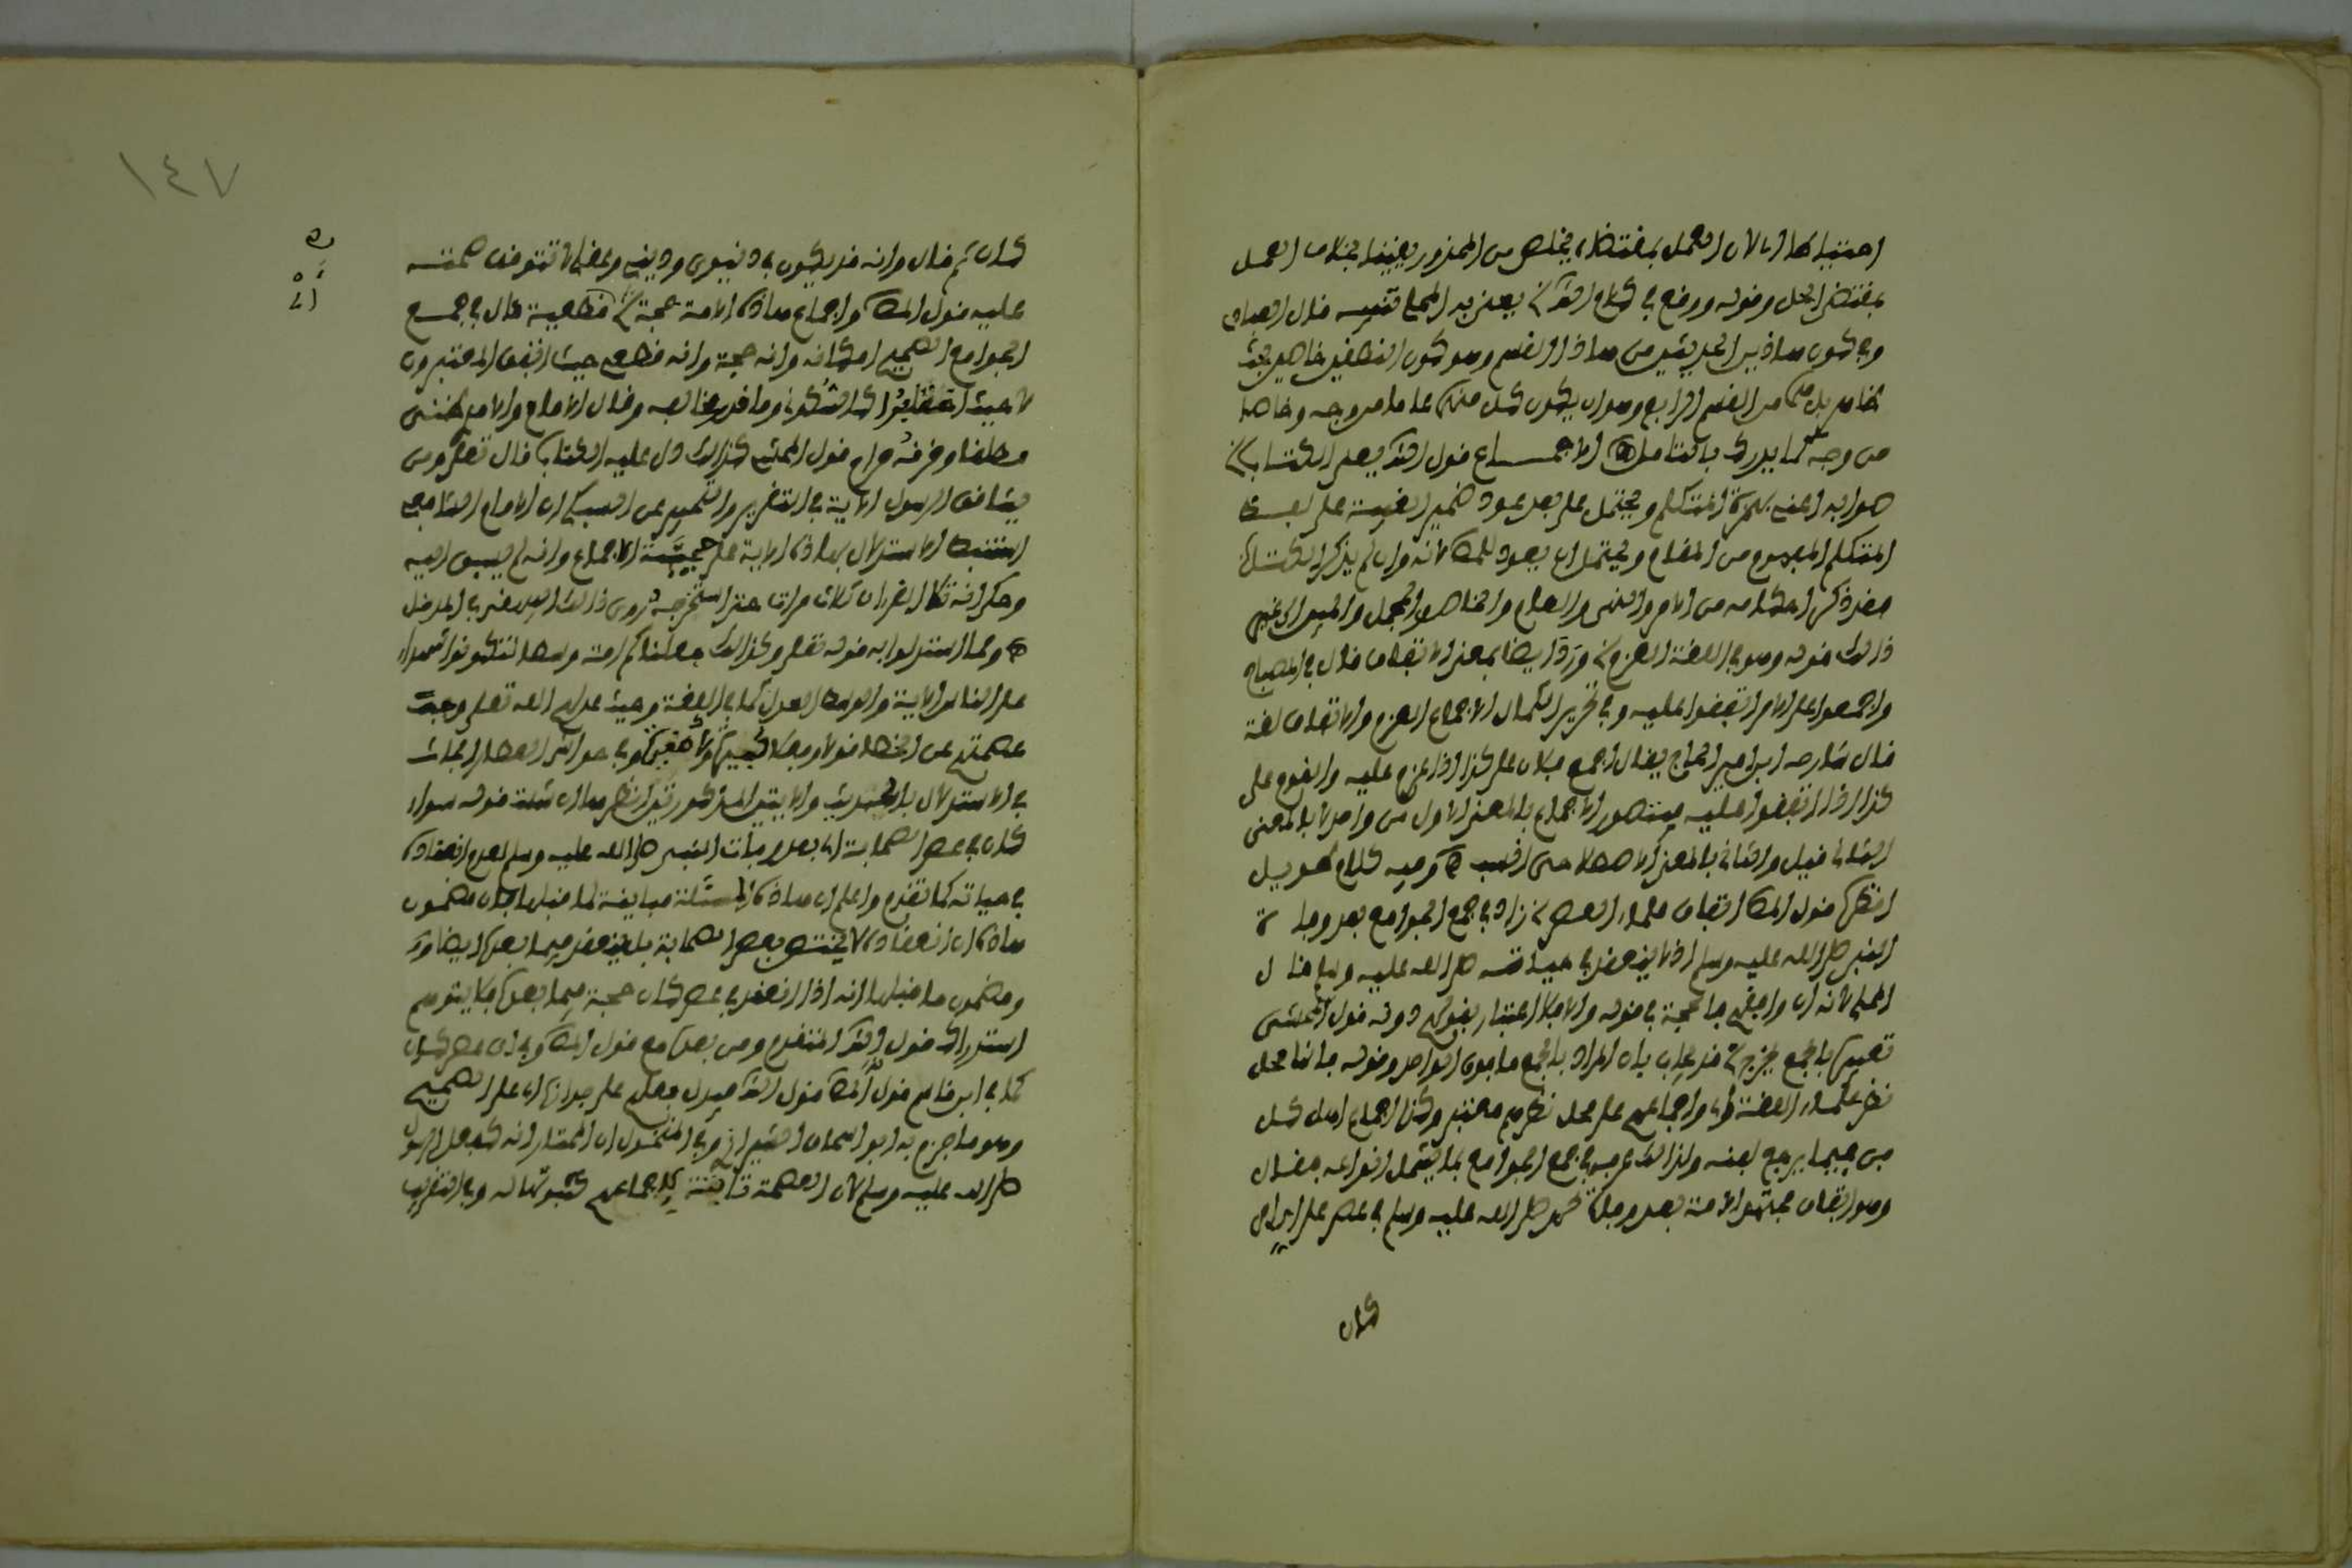 احتياطا اي لان العمل بمقتضاه يخلص من المحذور يقينا بخلاف العمل
بمقتضى الحل وقوله ووقع في كلام الش يعني به المحلي تنبيه قال العبادي
وفي كون هاذين الحديثين من هاذا القسم وهو كون النطقين خاصين بحث
ظاهر بل هما من القسم الرابع وهو ان يكون كل منهما عاما من وجه وخاصا
من وجه كما يدرك بالتامل الاجماع قول الش يعلى الكتاب
صوابه اعني بهمزة المتكلم ويحتمل على بعد عود ضمير الغيبة على لفظ
المتكلم المعلوم من المقام ويحتمل ان يعود للمص لانه وان لم يذكر الكتاب
فقد ذكر احكامه من الامر والنهي والعام والخاص والمجمل والمبين الى غير
ذالك قوله وهو في اللغة العزم ورد ايضا بمعنى الاتفاق قال في المصباح
واجمعوا على الامر اتفقوا عليه وفي تحرير الكمال الاجماع العزم والاتفاق لغة
قال شارحه ابن امير الحاج يقال اجمع فلان على كذا اذا عزم عليه والقوم على
كذا اذا اتفقوا عليه فيتصور الاجماع بالمعنى الاول من واحد لا بالمعنى
الثاني قيل والثاني بالمعنى الاصطلاحي انسب وفيه كلام طويل
انظره قول المص اتفاق علماء العصر زاد في جمع الجوامع بعد وفاة
النبي صلى الله عليه وسلم اذ لا ينعقد في حياته صلى الله عليه وسلم قال
المحلي لانه ان وافقهم فالحجة في قوله والا فلا اعتبار بقولهم دونه قول المحشي
تعبيره بالجمع يخرج قد يجاب بان المراد بالجمع ما فوق الواحد وقوله فاننا محل
نظر علماء الفقه اي واجماعهم على محل نظرهم معتبر وكذا اجماع اهل كل
فن فيما يرجع لفنه ولذالك عرفه في جمع الجوامع بما يشمل انواعه فقال
وهو اتفاق مجتهد الامة بعد وفاة محمد صلى الله عليه وسلم في عصر على اي امر
كان
١٤٧
كان ثم قال وانه قد يكون في دنيوي وديني وعقلي لا تتوقف صحته
عليه قول المص واجماع هاذه الامة حجة قطعية قال في جمع
الجوامع الصحيح امكانه وانه حجة وانه قطعي حيث اتفق المعتبرون
لا حيث اختلفوا كالسكوتي وما ندر مخالفه وقال الامام والامدي ظني
مطلقا وخرقه حرام قول المحشي كذالك دل عليه الكتاب قال تعلى ومن
يشاقق الرسول الاية في التقرير والتحبير عن السبكي ان الامام الشافعي
استنبط الاستدلال بهاذه الاية على حجية الاجماع وانه لم يسبق اليه
وحكى انه تلا القران ثلاث مرات حتى استخرجه روى ذالك البيهقي في المدخل
ومما استدلوا به قوله تعلى وكذالك جعلناكم امة وسطا لتكونوا شهداء
على الناس الاية والوسط العدل كما في اللغة وحيث عدلهم الله تعلى وجبت
عصمتهم عن الخطا قولا وفعلا كبيرة ولا صغيرة وفي حواشي العطار ابحاث
في الاستدلال بالحديث والايتين المذكورتين انظرها ان شئت قوله سواء
كان في عصر الصحابة اي بعد وفاة النبي صلى الله عليه وسلم لعدم انعقاده
في حياته كما تقدم واعلم ان هاذه المسئلة مباينة لما قبلها لان مضمون
هاذه ان انعقاده لا يختص بعصر الصحابة بل ينعقد فيما بعده ايضا
ومضمون ما قبلها انه اذا انعقد في عصر كان حجة فيما بعده فلا يتوهم
استدراك قول الش المتقدم ومن بعده مع قول المص وفي اي عصر كان
كما في ابن قاسم قول المص قول الش فيدل فعله على جوازه اي على الصحيح
وهو ما جزم به ابو اسحاق الشيرازي وفي المنخول ان المختار انه كفعل الرسول
صلى الله عليه وسلم لان العصمة ثابتة لاجماعهم كثبوتها له وفي التقرير